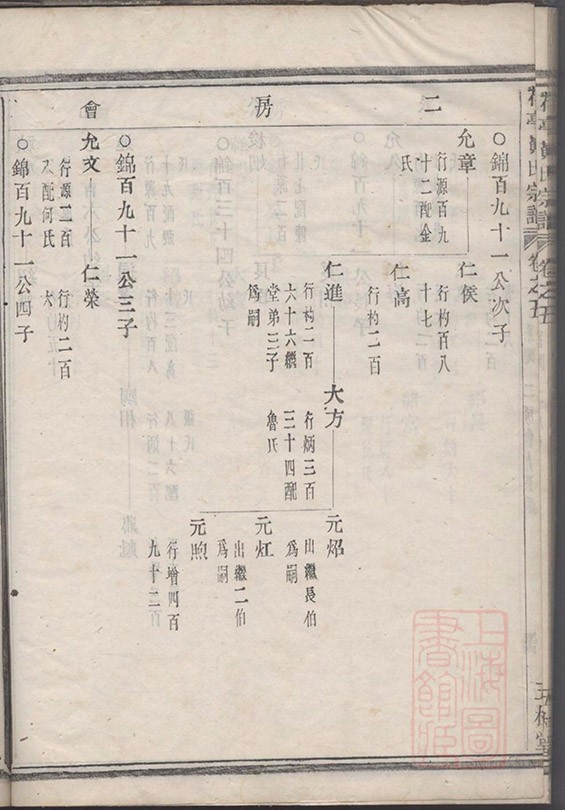 二房會
○錦百九十一公次子
允章
行源百九
十二配金
氏
仁侯
行杓百八
十七
仁高
行杓二百
仁進
行杓二百
六十六繼
堂弟三子
爲嗣
大方
行炳三百
三十四配
魯氏
元炤
出繼長伯
爲嗣
元灴
出繼二伯
爲嗣
元煦
行增四百
九十二
○錦百九十一公三子
允文
行源二百
配何氏
仁榮
行杓二百
○錦百九十一公四子
宗譜
卷之五
上海圖書館藏